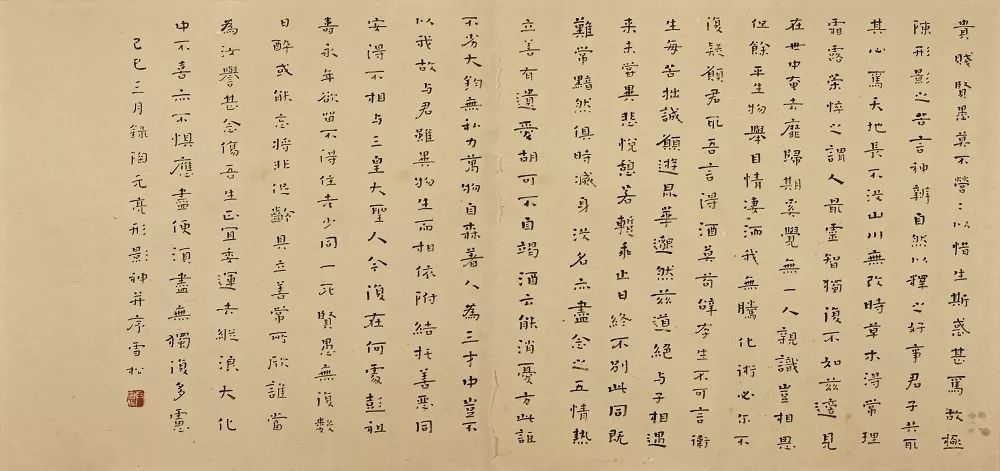 貴賤賢愚莫不營〻以惜生斯惑甚焉故極
陳形影之苦言神辨自然以釋之好事君子共取
其心焉天地長不沒山川無改時草木得常理
霜露榮悴之謂人最靈智獨復不如茲適見
在世中奄去靡歸期奚覺無一人親識豈相思
但餘平生物舉目情凄洏我無騰化術必尔不
復疑願君取吾言得酒莫苟辭存生不可言衛
生每苦拙誠願遊崑華邈然茲道絕与子相遇
来未嘗異悲悅憩若暫乖止日終不別此同既
難常黯然俱時滅身沒名亦盡念之五情熱
立善有遺愛胡可不自竭酒云能消憂方此詎
不劣大鈞無私力萬物自森著人為三才中豈不
以我故与君雖異物生而相依附結托善惡同
安得不相与三皇大聖人今復在何處彭祖
壽永年欲留不得住老少同一死賢愚無復數
日醉或能忘將非促齡具立善常所欣誰當
為汝譽甚念傷吾生正宜委運去縱浪大化
中不喜亦不懼應盡便須盡無獨復多慮
己巳三月錄陶元亮形影神并序雪松